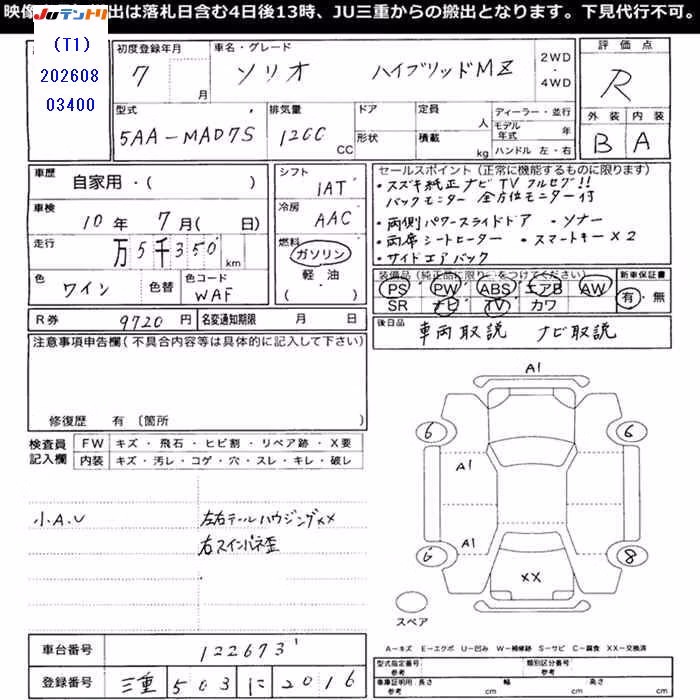 映像 出は落札日含む4日後13時、JU三重からの搬出となります。下見代行不可。
JUテントリ
(T1)
202608
03400
初度登録年月
7 月
車名・グレード
ソリオ ハイブリッドMZ
2WD
・
4WD
評価点
R
外装 内装
B A
型式
5AA-MAD7S
排気量
1200 CC
ドア
形状
定員 人
積載 kg
ディーラー・並行
モデル年式 年
ハンドル 左・右
車歴
自家用・( )
車検
10年 7月( 日)
走行
万5千350km
色
ワイン
色替
色コード
WAF
シフト
IAT
冷房
AAC
燃料
ガソリン
軽・油
( )
セールスポイント(正常に機能するものに限ります)
・スズキ純正ナビTVフルセグ!!
バックモニター 全方位モニター付
・両側パワースライドドア ・ソナー
・両席シートヒーター ・スマートキーX2
・サイドエアバック
装備品(純正品に限り○をつけてください)
PS・PW・ABS・エアB・AW
SR ナビ TV カワ
新車保証書
有・無
R券 9720円 名変通知期限 月 日
後日品
車両取説 ナビ取説
注意事項申告欄(不具合内容等は具体的に記入して下さい)
修復歴 有 〔箇所
検査員
記入欄
FW キズ・飛石・ヒビ割・リペア跡・X要
内装 キズ・汚レ・コゲ・穴・スレ・キレ・破レ
小A.U
左右テールハウジングXX
右スインパネ歪
A1
6
6
A1
A1
6
8
XX
スペア
A-キズ E-エクボ U-凹み W-補修跡 S-サビ C-腐食 XX-交換済
車台番号 122673
登録番号 三重 503 に 2016
型式指定番号
参考
類別区分番号
参考
車庫証明用・長さ
参考 cm
幅
cm
高さ
cm